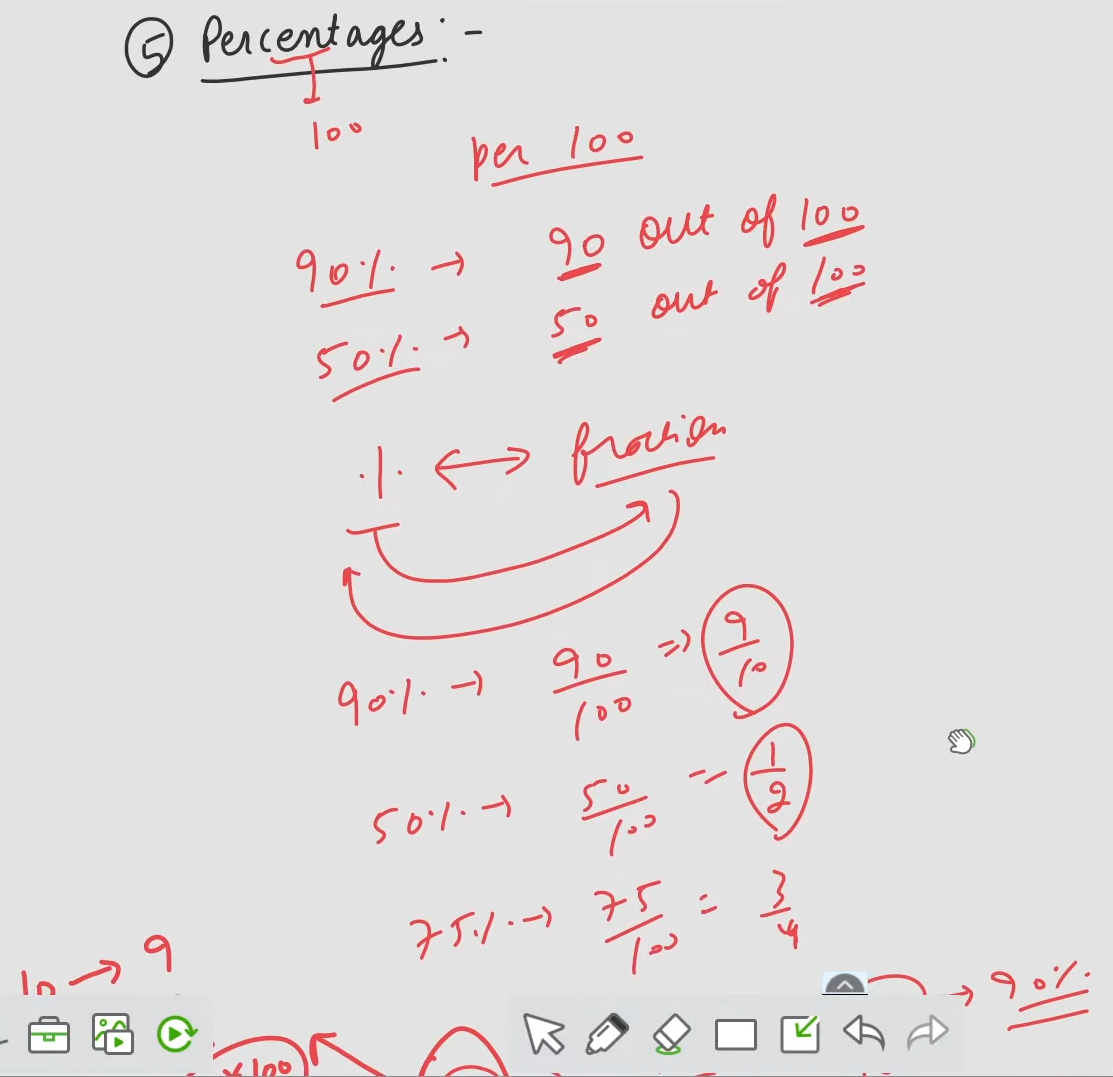 ⑤ Percentages :-
100
per 100
90% → 90 out of 100
50% → 50 out of 100
% ↔ fraction
90% → 90/100 => 9/10
50% → 50/100 = 1/2
75% → 75/100 = 3/4
10 → 9
→ 90%
×100